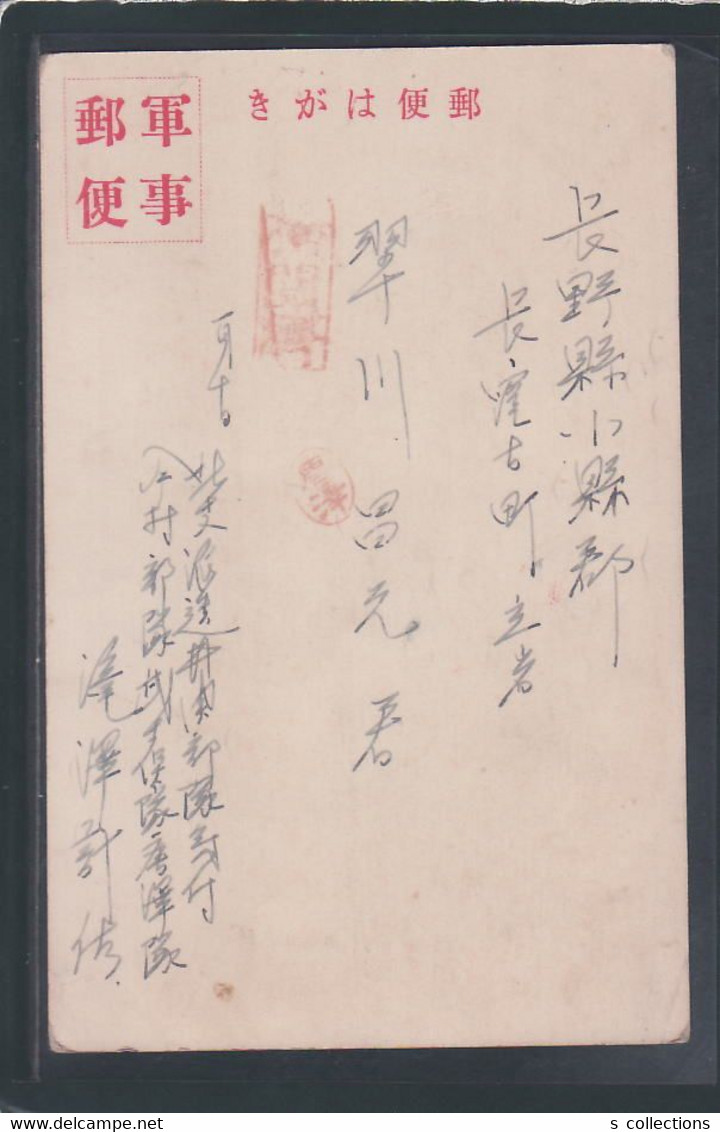 郵便はがき
軍事
郵便
長野縣小縣郡
長窪古町立岩
翠川昌元君
一月十日
北支派遣 部隊気付
村部隊 隊唐澤隊
滝澤計佐
s collections